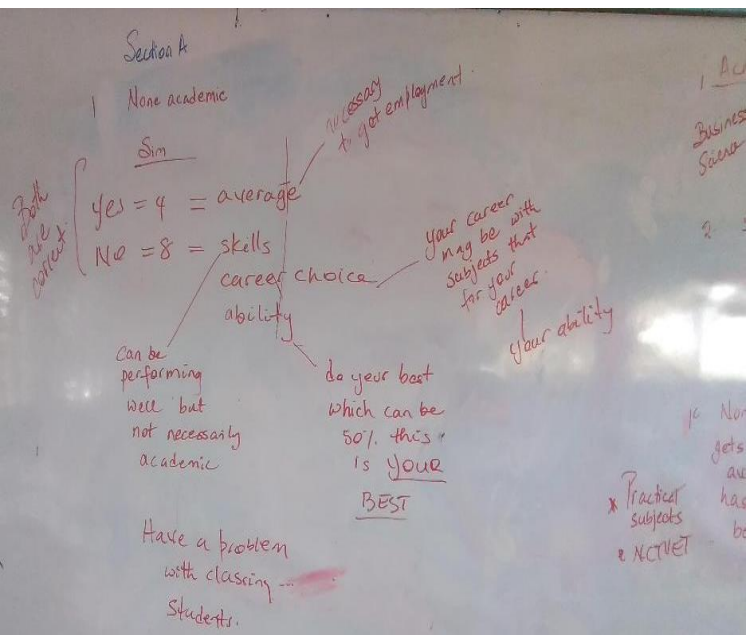 Section A
1 None academic
Sim
Both
are
correct.
Yes = 4 = average
No = 8 = skills
career choice
ability
necessary
to get employment.
your career
may be with
subjects that
for your
career.
your ability
can be
performing
well but
not necessarily
academic
do your best
which can be
50% this
is YOUR
BEST
Have a problem
with classing ---
students.
1
Business
2.
Non
gets
has
be
* Practical
subjects
NCTVET